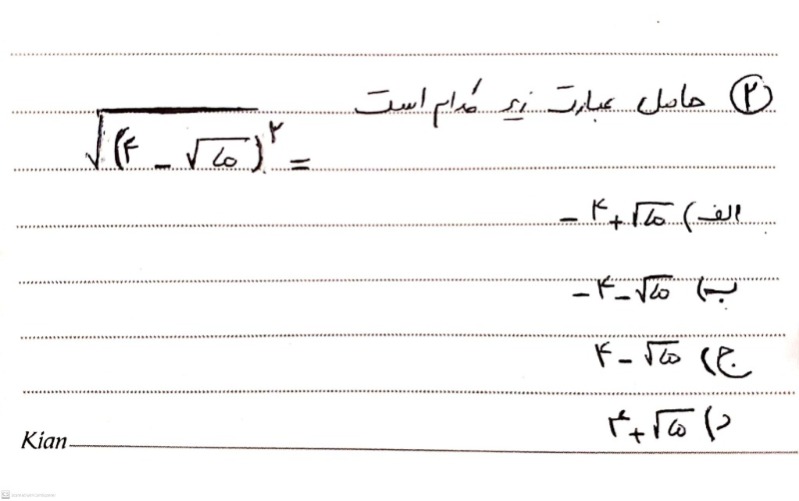 ۲) حاصل عبارت زیر کدام است
√(۴ - √۱۵)^۲ =
الف) -۴+√۱۵
ب) -۴-√۱۵
ج) ۴-√۱۵
د) ۴+√۱۵
Kian